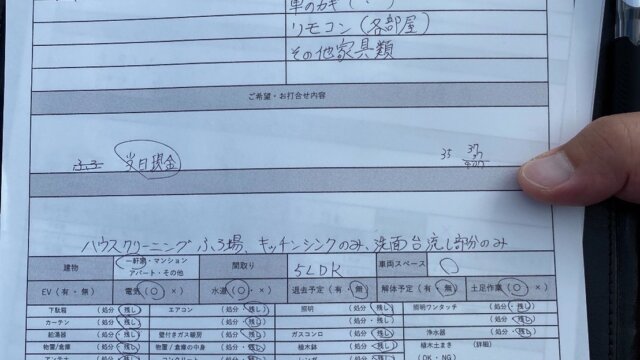 車のカギ(・・)
リモコン(各部屋)
その他家具類
ご希望・お打合せ内容
当日現金
35 37
ハウスクリーニング ふろ場、キッチンシンクのみ、洗面台流し部分のみ
建物 一軒家・マンション アパート・その他 間取り 5LDK 車両スペース ○
EV (有・無) 電気 (○・×) 水道 (○・×) 退去予定 (有・無) 解体予定 (有・無) 土足作業 (○・×)
下駄箱 (処分・残し) エアコン (処分・残し) 照明 (処分・残し) 照明ワンタッチ (処分・残し)
カーテン (処分・残し) (処分・残し) (処分・残し) (処分・残し)
給湯器 (処分・残し) 壁付きガス暖房 (処分・残し) ガスコンロ (処分・残し) 浄水器 (処分・残し)
物置/倉庫 (処分・残し) 物置/倉庫の中身 (処分・残し) 植木鉢 (処分・残し) 植木土まき (詳細)
アンテナ (処分・残し) (処分・残し) (処分・残し) (OK・NG)